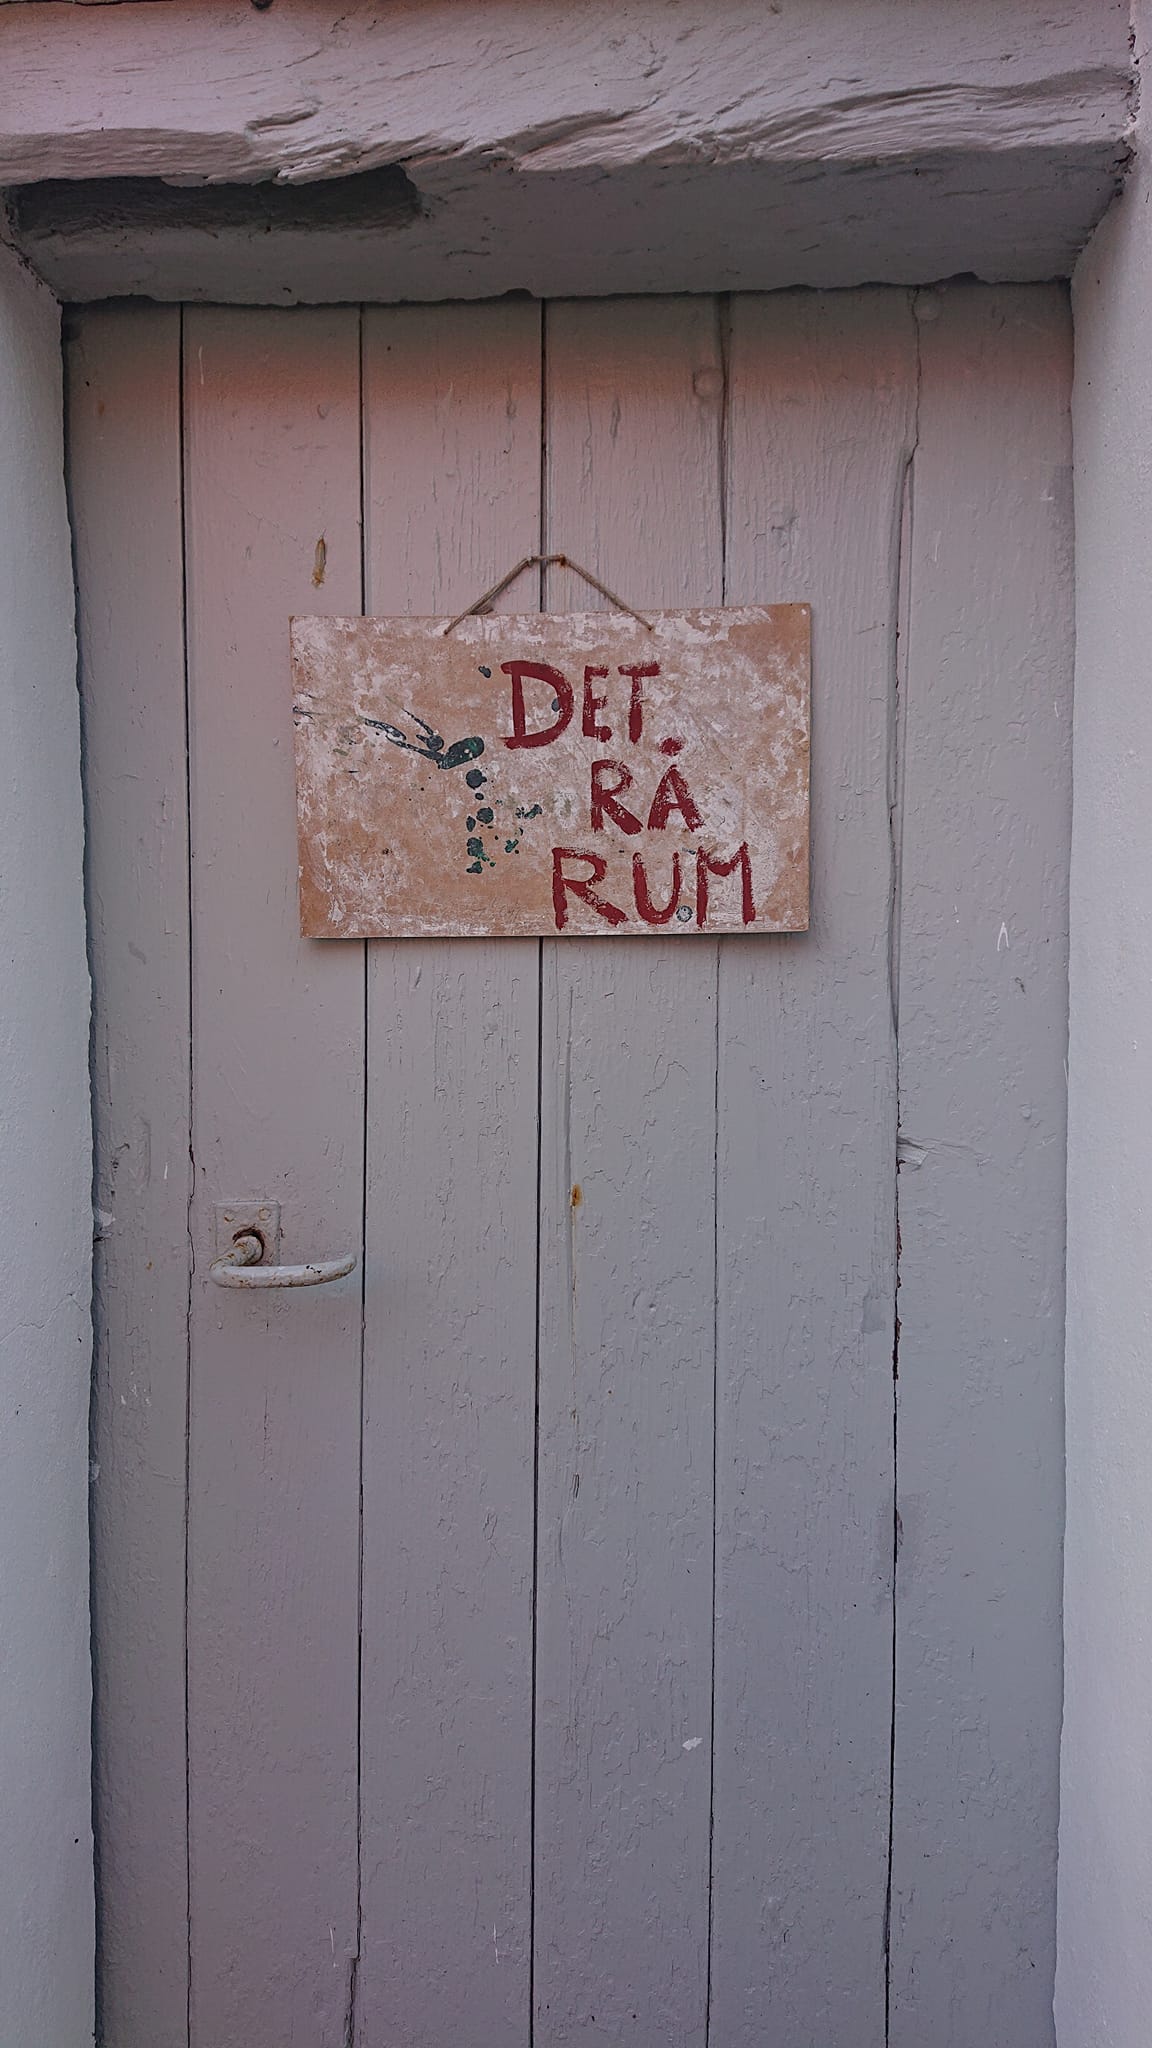 DET
RÅ
RUM